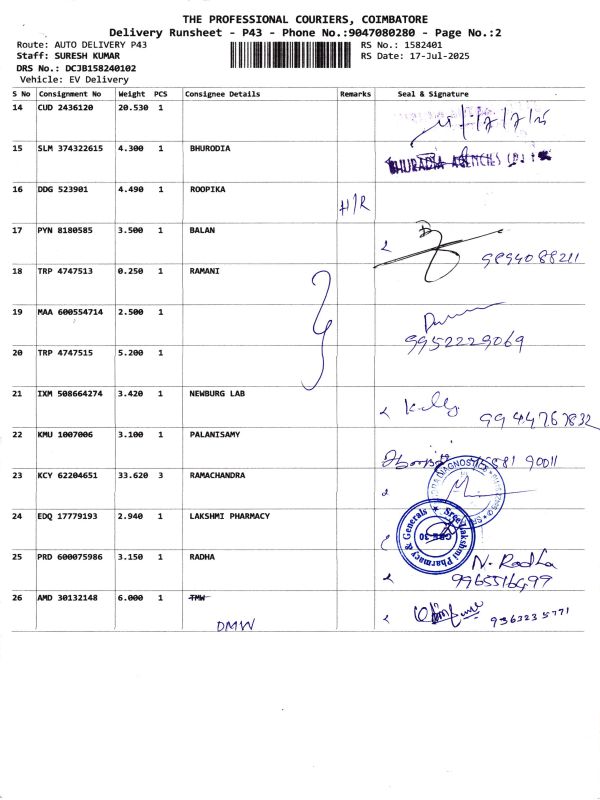 THE PROFESSIONAL COURIERS, COIMBATORE
Delivery Runsheet - P43 - Phone No.:9047080280 - Page No.:2
Route: AUTO DELIVERY P43 RS No.: 1582401
Staff: SURESH KUMAR RS Date: 17-Jul-2025
DRS No.: DCJB158240102
Vehicle: EV Delivery
S No Consignment No Weight PCS Consignee Details Remarks Seal & Signature
14 CUD 2436120 20.530 1
15 SLM 374322615 4.300 1 BHURODIA
16 DDG 523901 4.490 1 ROOPIKA H/R
17 PYN 8180585 3.500 1 BALAN 9894088211
18 TRP 4747513 0.250 1 RAMANI
19 MAA 600554714 2.500 1
9952229069
20 TRP 4747515 5.200 1
21 IXM 508664274 3.420 1 NEWBURG LAB 9944767832
22 KMU 1007006 3.100 1 PALANISAMY 90011
23 KCY 62204651 33.620 3 RAMACHANDRA DIAGNOSTICS
24 EDQ 17779193 2.940 1 LAKSHMI PHARMACY Sree Lakshmi Pharmacy & Generals
25 PRD 600075986 3.150 1 RADHA N. Radha
9965516499
26 AMD 30132148 6.000 1 TMW 9363235771
DMW